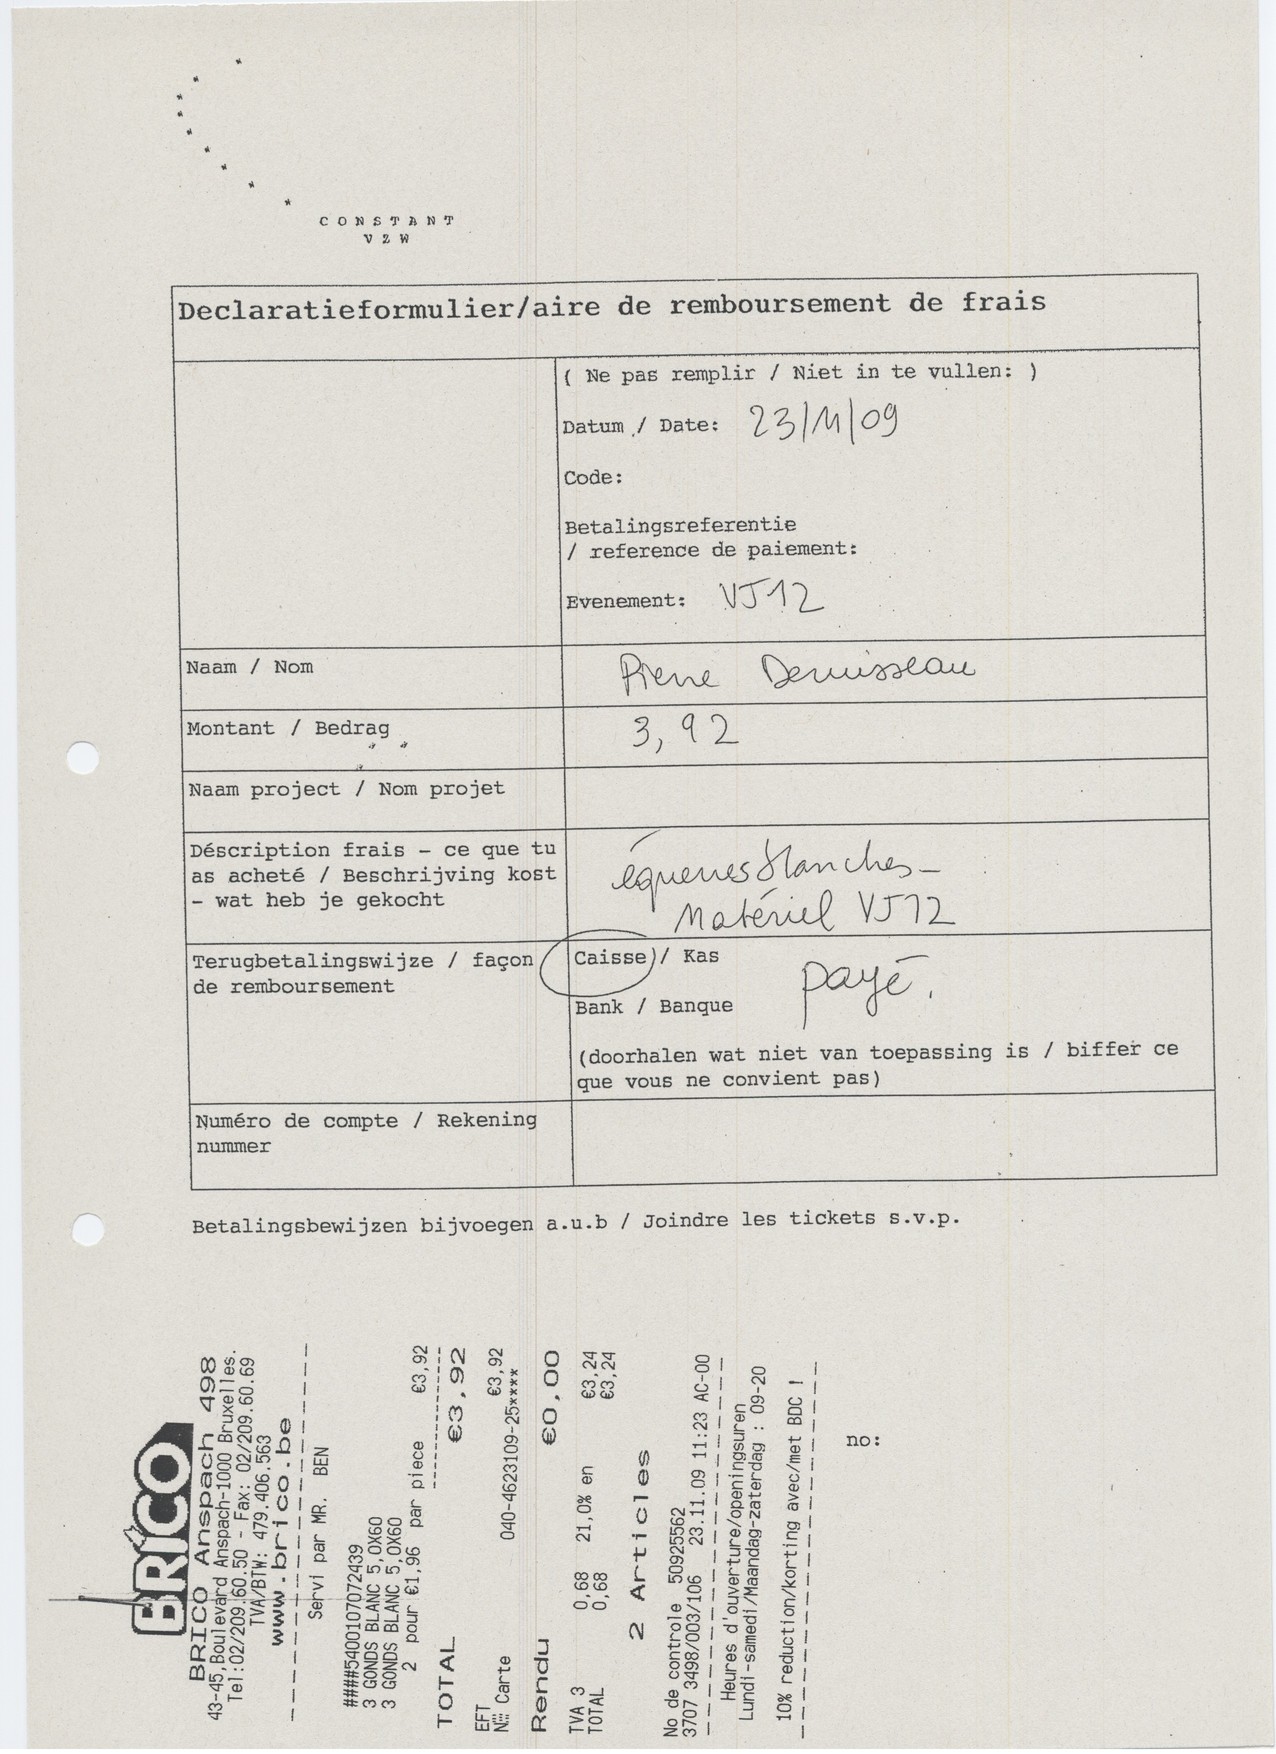 CONSTANT
VZW
Declaratieformulier/aire de remboursement de frais
( Ne pas remplir / Niet in te vullen: )
Datum / Date: 23/11/09
Code:
Betalingsreferentie
/ reference de paiement:
Evenement: VJ12
Naam / Nom
Pierre Deruisseau
Montant / Bedrag
3,92
Naam project / Nom projet
Déscription frais – ce que tu
as acheté / Beschrijving kost
– wat heb je gekocht
équerres blanches –
Matériel VJ12
Terugbetalingswijze / façon
de remboursement
Caisse / Kas
payé.
Bank / Banque
(doorhalen wat niet van toepassing is / biffer ce
que vous ne convient pas)
Numéro de compte / Rekening
nummer
Betalingsbewijzen bijvoegen a.u.b / Joindre les tickets s.v.p.
BRICO
BRICO Anspach 498
43-45,Boulevard Anspach-1000 Bruxelles.
Tel:02/209.60.50 - Fax: 02/209.60.69
TVA/BTW: 479.406.563
www.brico.be
Servi par MR. BEN
####5400107072439
3 GONDS BLANC 5,0X60
3 GONDS BLANC 5,0X60
2 pour €1,96 par piece €3,92
TOTAL €3,92
EFT €3,92
N Carte 040-4623109-25****
Rendu €0,00
TVA 3 0,68 21,0% en €3,24
TOTAL 0,68 €3,24
2 Articles
No de controle 50925562
3707 3498/003/106 23.11.09 11:23 AC-00
Heures d'ouverture/openingsuren
Lundi-samedi/Maandag-zaterdag : 09-20
10% reduction/korting avec/met BDC !
no: